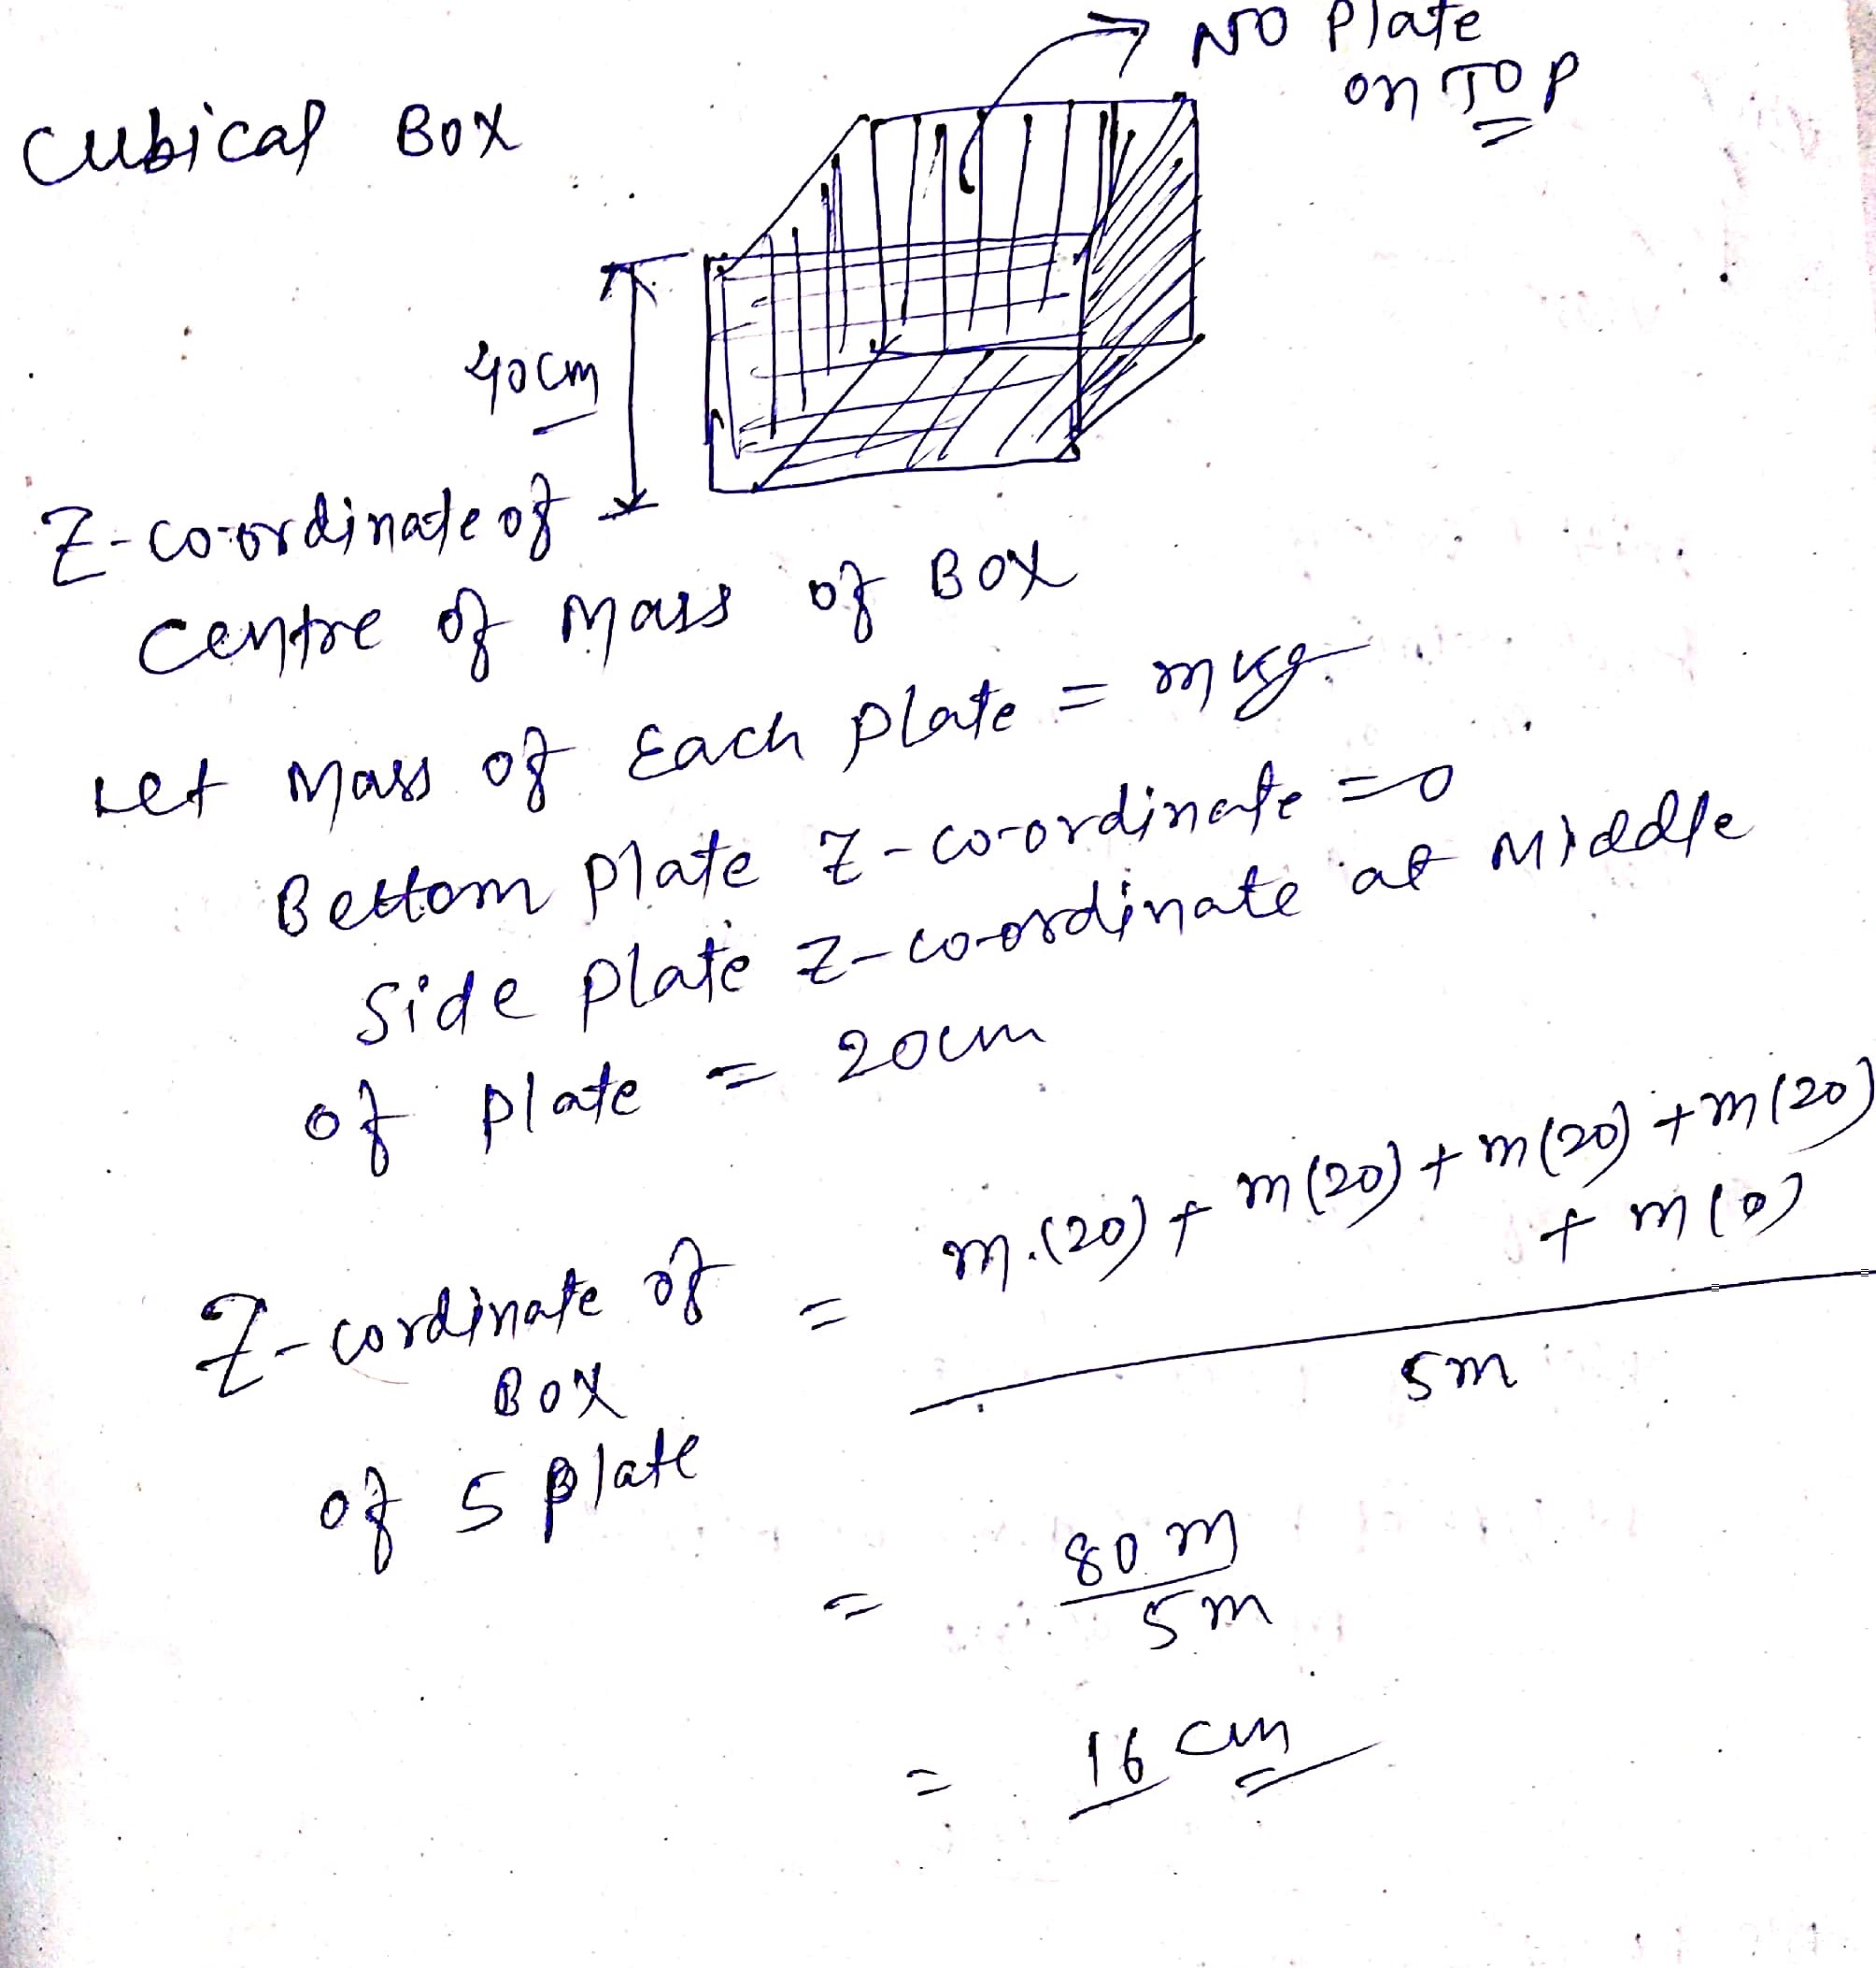 NO Plate
on TOP
Cubical Box
40cm
Z-co-ordinate of
Centre of Mass of Box
Let Mass of Each Plate = m kg
Bottom Plate Z-co-ordinate = 0
Side Plate Z-co-ordinate at Middle
of Plate = 20cm
Z-cordinate of = m.(20) + m(20) + m(20) + m(20)
+ m(0)
Box
5m
of 5 Plate
= 80m
5m
= 16 cm